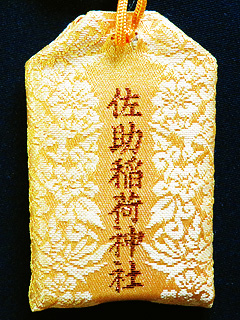 佐助稲荷神社